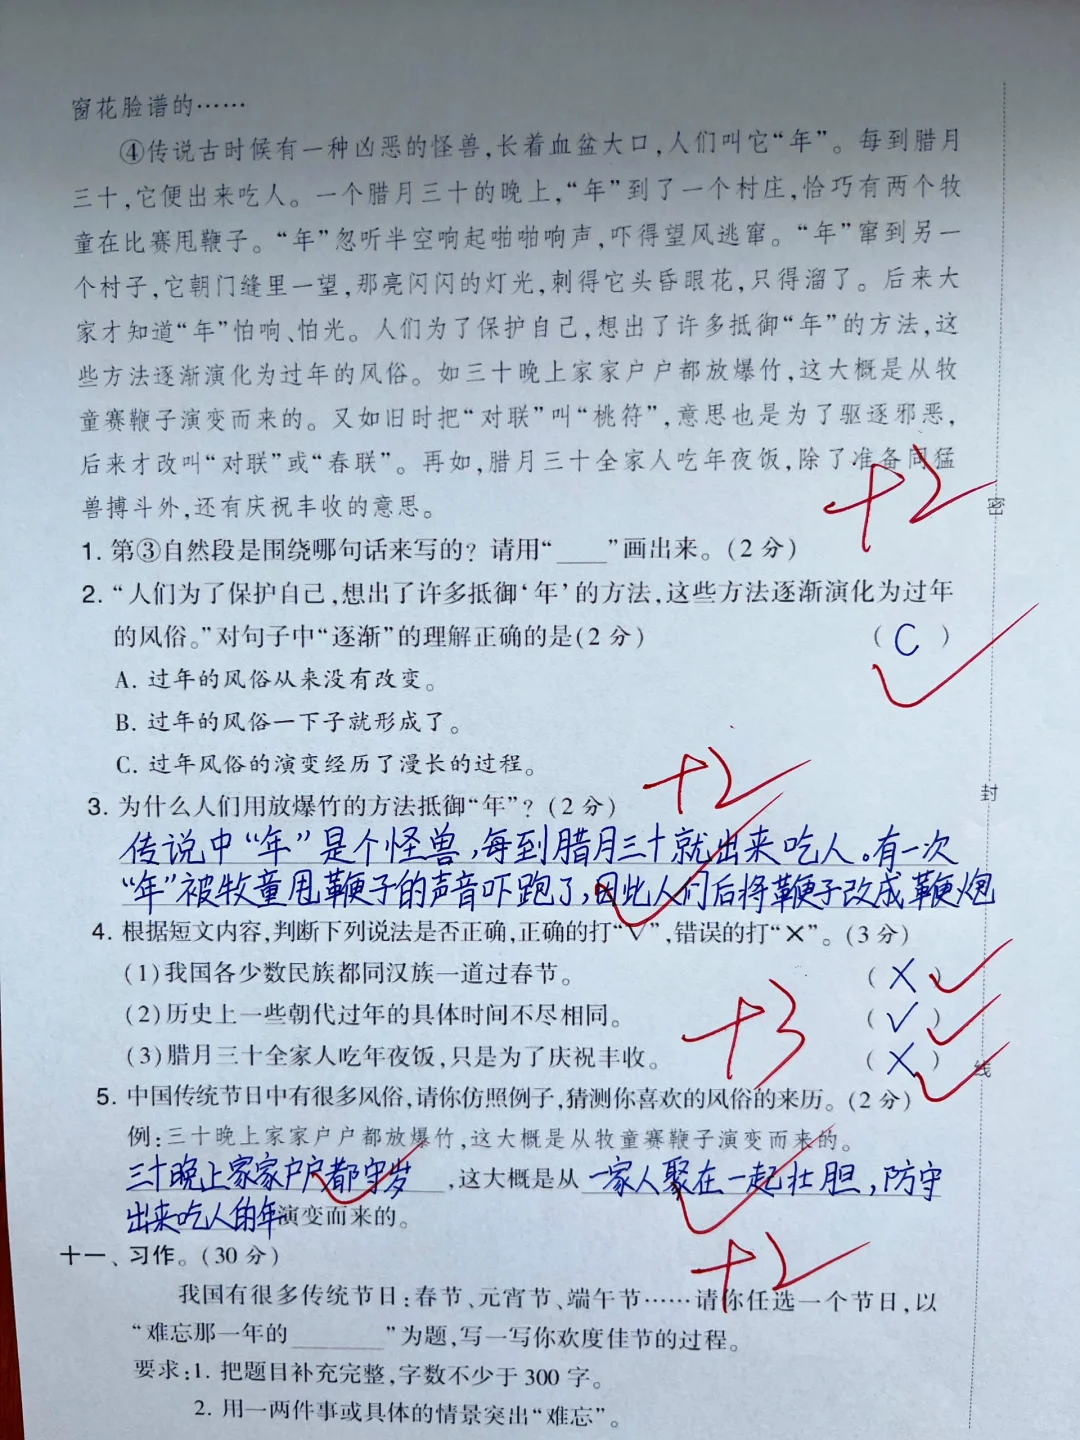 窗花脸谱的……
④传说古时候有一种凶恶的怪兽,长着血盆大口,人们叫它“年”。每到腊月
三十,它便出来吃人。一个腊月三十的晚上,“年”到了一个村庄,恰巧有两个牧
童在比赛甩鞭子。“年”忽听半空响起啪啪响声,吓得望风逃窜。“年”窜到另一
个村子,它朝门缝里一望,那亮闪闪的灯光,刺得它头昏眼花,只得溜了。后来大
家才知道“年”怕响、怕光。人们为了保护自己,想出了许多抵御“年”的方法,这
些方法逐渐演化为过年的风俗。如三十晚上家家户户都放爆竹,这大概是从牧
童赛鞭子演变而来的。又如旧时把“对联”叫“桃符”,意思也是为了驱逐邪恶,
后来才改叫“对联”或“春联”。再如,腊月三十全家人吃年夜饭,除了准备同猛
兽搏斗外,还有庆祝丰收的意思。
+2
密
1. 第③自然段是围绕哪句话来写的?请用“____”画出来。(2分)
2. “人们为了保护自己,想出了许多抵御‘年’的方法,这些方法逐渐演化为过年
的风俗。”对句子中“逐渐”的理解正确的是(2分) ( C )
A. 过年的风俗从来没有改变。
B. 过年的风俗一下子就形成了。
C. 过年风俗的演变经历了漫长的过程。
+2
封
3. 为什么人们用放爆竹的方法抵御“年”?(2分)
传说中“年”是个怪兽,每到腊月三十就出来吃人。有一次
“年”被牧童甩鞭子的声音吓跑了,因此人们后将鞭子改成鞭炮
4. 根据短文内容,判断下列说法是否正确,正确的打“√”,错误的打“×”。(3分)
(1)我国各少数民族都同汉族一道过春节。 ( × )
(2)历史上一些朝代过年的具体时间不尽相同。 ( √ )
+3
(3)腊月三十全家人吃年夜饭,只是为了庆祝丰收。 ( × )
线
5. 中国传统节日中有很多风俗,请你仿照例子,猜测你喜欢的风俗的来历。(2分)
例:三十晚上家家户户都放爆竹,这大概是从牧童赛鞭子演变而来的。
三十晚上家家户户都守岁,这大概是从一家人聚在一起壮胆,防守
出来吃人的年演变而来的。
+2
十一、习作。(30分)
我国有很多传统节日:春节、元宵节、端午节……请你任选一个节日,以
“难忘那一年的________”为题,写一写你欢度佳节的过程。
要求:1. 把题目补充完整,字数不少于300字。
2. 用一两件事或具体的情景突出“难忘”。